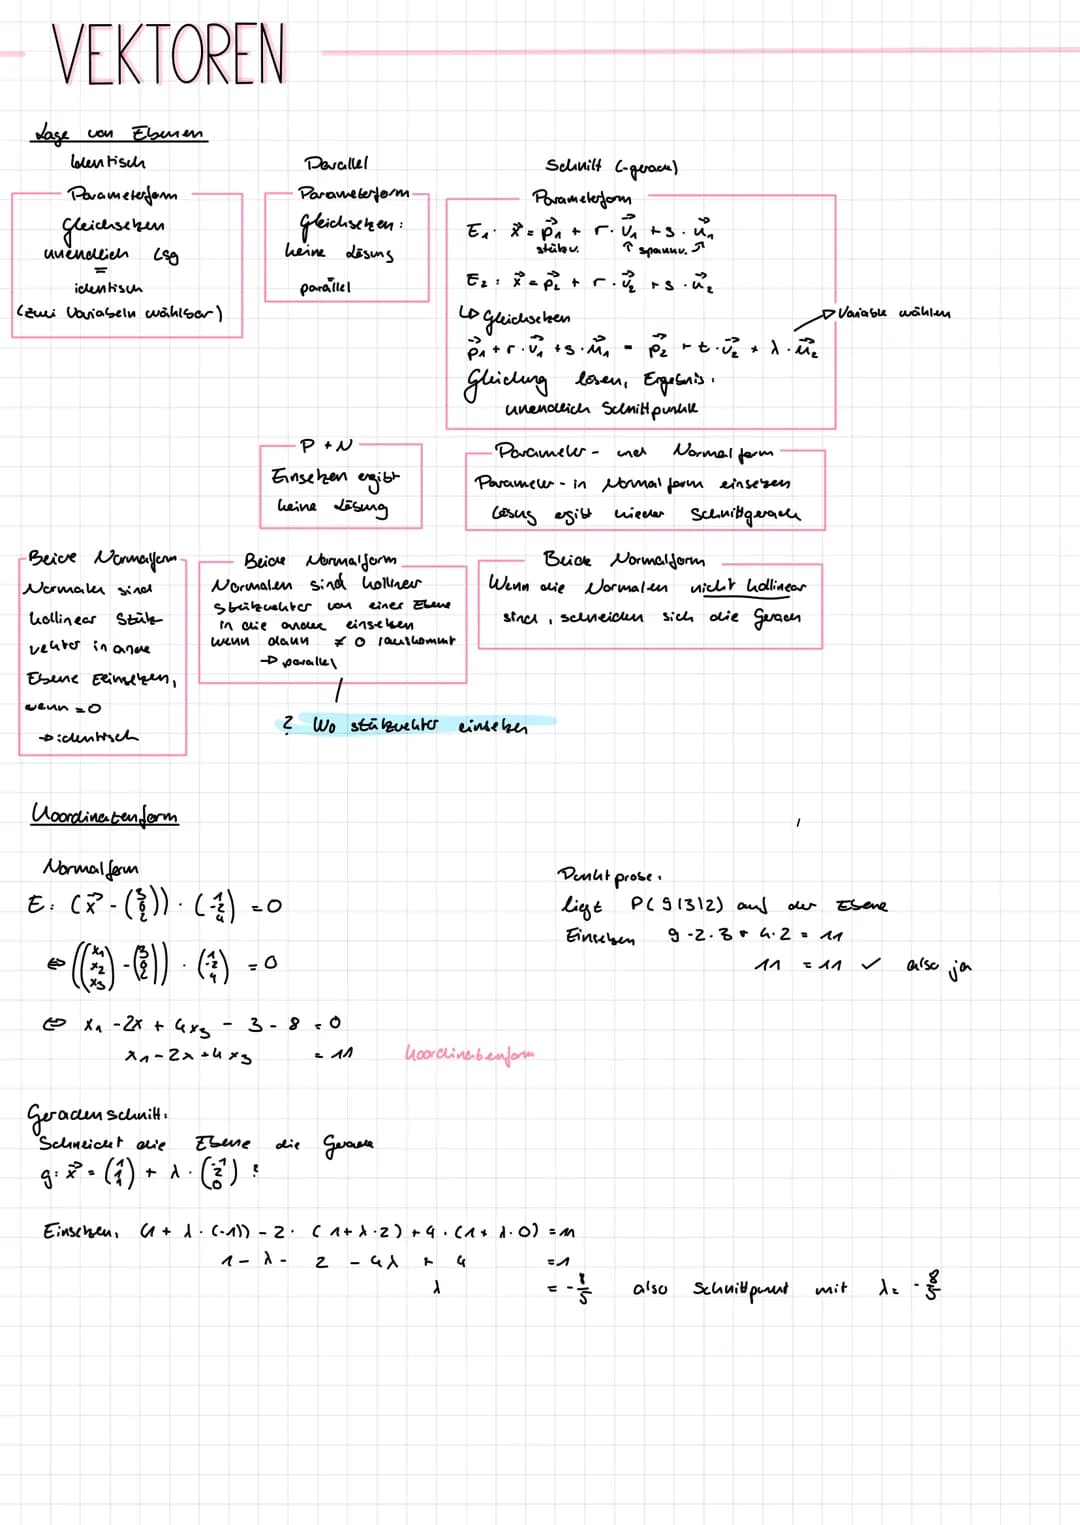 VEKTOREN
Lage von Ebenen
Identisch
Parameterform
Gleichsetzen
unendlich Lsg
=
identisch
(zwei Variabeln wählbar)
Parallel
Parameterform
Gleichsetzen:
keine Lösung
parallel
Schnitt (-gerade)
Parameterform
E₁: x⃗ = p⃗₁ + r · v⃗₁ + s · u⃗₁
stützv. ↑ spannv. ↗
E₂: x⃗ = p⃗₂ + r · v⃗₂ + s · u⃗₂
↳ Gleichsetzen
→ Variable wählen
p⃗₁ + r · v⃗₁ + s · u⃗₁ = p⃗₂ + t · v⃗₂ + λ · u⃗₂
Gleichung lösen, Ergebnis:
unendlich Schnittpunkte
P + N
Einsetzen ergibt
keine Lösung
Parameter- und Normalform
Parameter- in Normalform einsetzen
Lösug ergibt wieder Schnittgerade
Beide Normalform
Normalen sind
kollinear Stütz-
vektor in andre
Ebene Eeinsetzen,
wenn = 0
→ identisch
Beide Normalform
Normalen sind kollinear
Stützvektor von einer Ebene
in die andere einsetzen
wenn dann ≠ 0 rauskommt
→ parallel
Beide Normalform
Wenn die Normalen nicht kollinear
sind, schneiden sich die Geraden
? Wo stützvektor einsetzen
Koordinatenform
Normalform
E: (x⃗ - (3 0 2)) · (1 -2 4) = 0
⇔ ((x₁ x₂ x₃) - (3 0 2)) · (1 -2 4) = 0
⇔ x₁ - 2x + 4x₃ - 3 - 8 = 0
x₁ - 2x + 4x₃ = 11 Koordinatenform
Punktprobe:
liegt P(9|3|2) auf der Ebene
Einsetzen 9 - 2·3 + 4·2 = 11
11 = 11 ✓ also ja
Geradenschnitt:
Schneidet die Ebene die Gerade
g: x⃗ = (1 1 1) + λ · (-1 2 0) ?
Einsetzen: (1 + λ · (-1)) - 2 · (1 + λ · 2) + 4 · (1 + λ · 0) = 11
1 - λ - 2 - 4λ + 4 = 1
λ = - 8/5 also Schnittpunkt mit λ = - 8/5